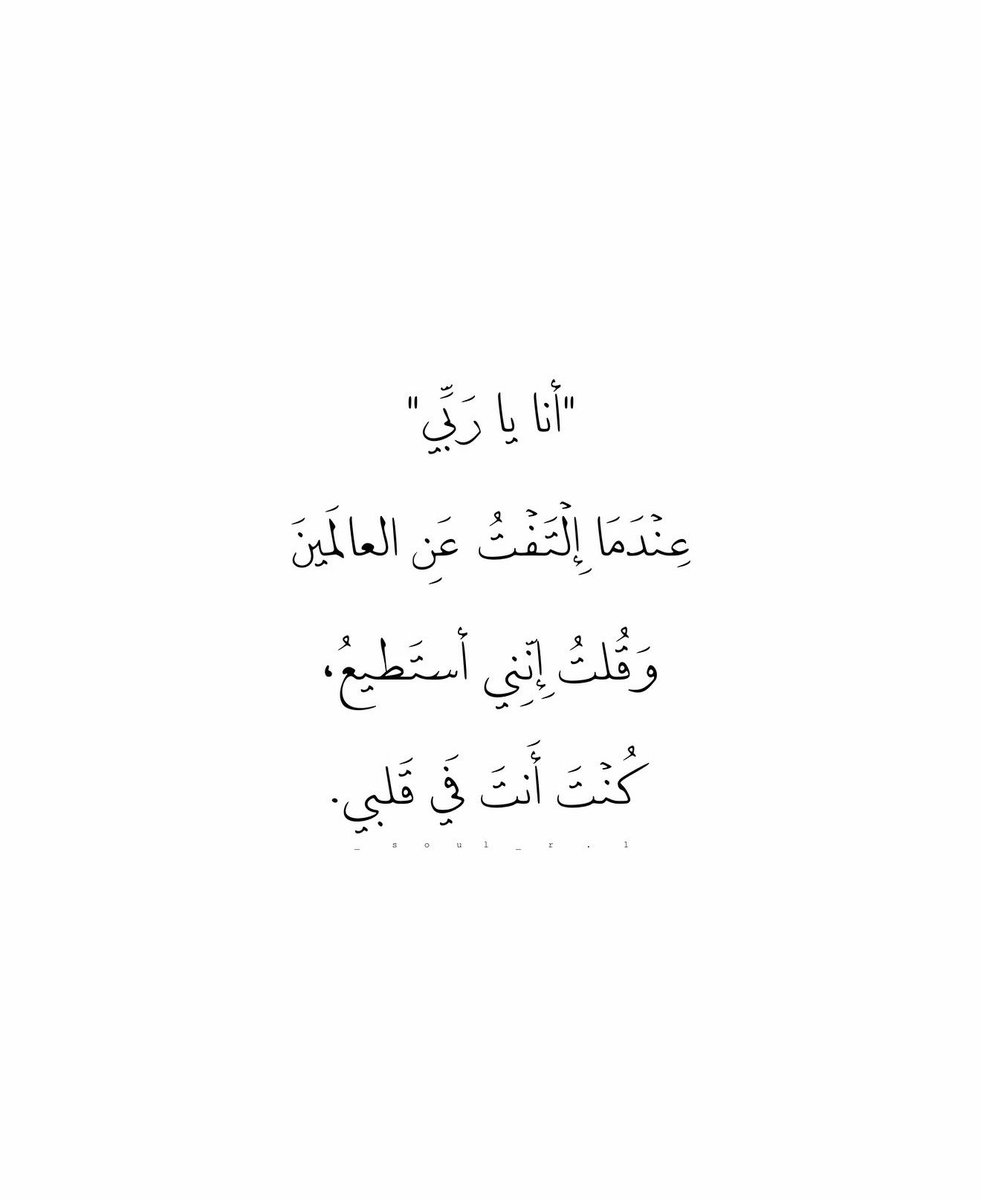 "أنا يا رَبِّي"
عِنۡدَمَا إِلۡتَفۡتُ عَنِ العالَمينَ
وَقُلتُ إِنّنِي أستَطيعُ،
كُنۡتَ أَنتَ فَي قَلبي.
_ soul _ r . l